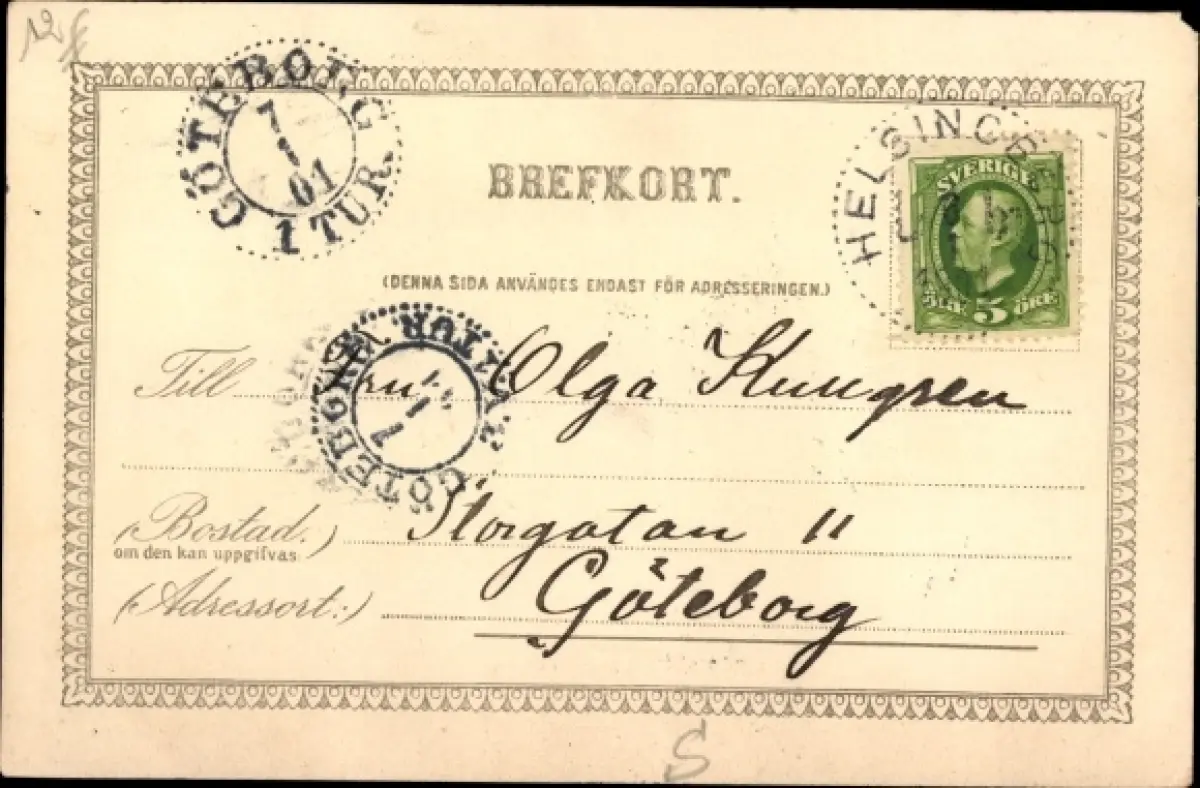 12
GÖTEBORG
7
1
01
1 TUR.
BREFKORT.
HELSINGBERG
SVERIGE
5 ÖRE
(DENNA SIDA ANVÄNDES ENDAST FÖR ADRESSERINGEN.)
Till Fru Olga Kungren
GÖTEBORG
TUR
7
1
(Bostad.) Storgatan 11
om den kan uppgifvas.
(Adressort:) Göteborg
S